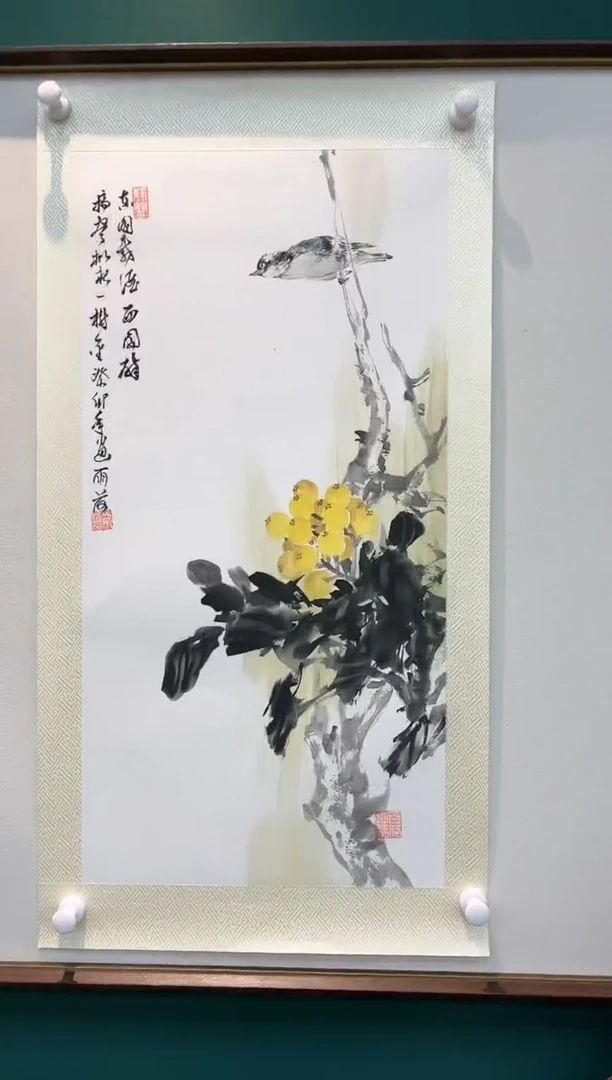 东园载酒西园醉
摘尽枇杷一树金癸卯年画雨荷